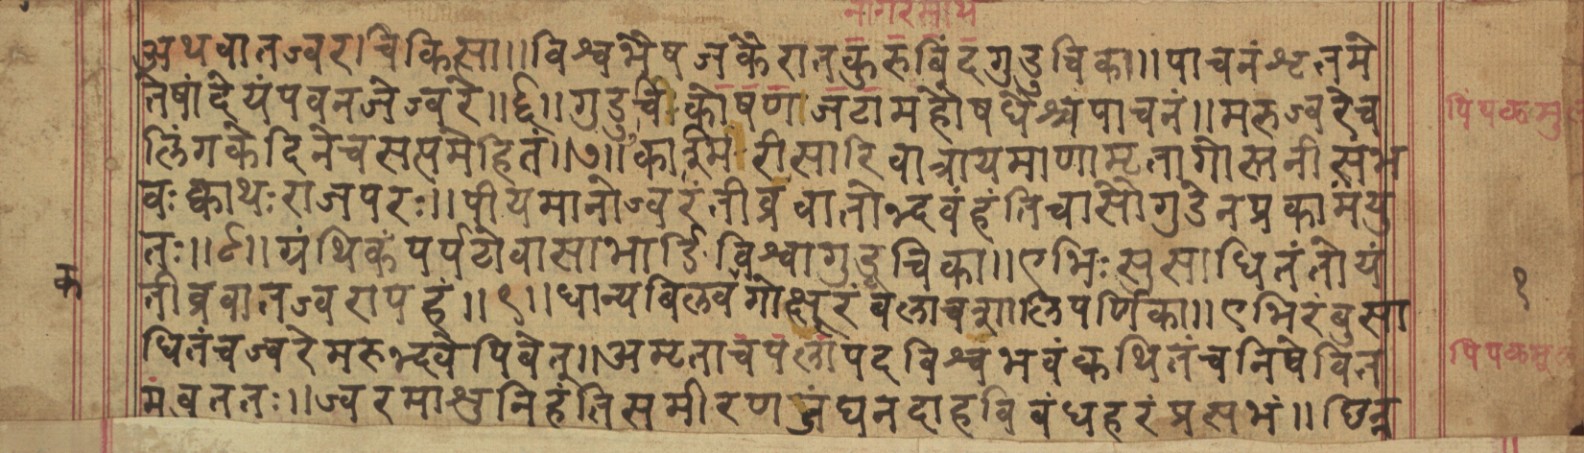 नागरमोथ
अथवातज्वराचिकित्सा॥विश्वभैषजकैरातकुरुविंदगुडुचिका॥पाचनंशृतमे
तेषांदेयंपवनजेज्वरे॥६॥गुडुचिकोषणाजटामहौषधैश्चपाचनं॥मरुज्वरेच
लिंगकेदिनेचसप्तमेहितं॥७॥काश्मरीसारिवात्रायमाणामृतागोस्तनीसंभ
वःक्वाथःराजपरः॥पीयमानोज्वरंतीव्रवातोद्भवंहंतिचासौगुडेनप्रकामंयु
तः॥८॥ग्रंथिकंपर्पटोवासाभार्ङिविश्वागुडूचिका॥एभिःसुसाधितंतोयं
क
तीव्रवातज्वरापहं॥९॥धान्यबिलवंगोक्षूरंबलाचशालिपर्णिका॥एभिरंबुसा
१
धितंचज्वरेमरुद्भवेपिबेत्॥अमृताचपलापदविश्वभवंक्वथितंचनिषेवित
मंबततः॥ज्वरमाशुनिहंतिसमीरणजंघनदाहविबंधहरंप्रसभं॥छिन्न
पिपळमु
पिपळमूल